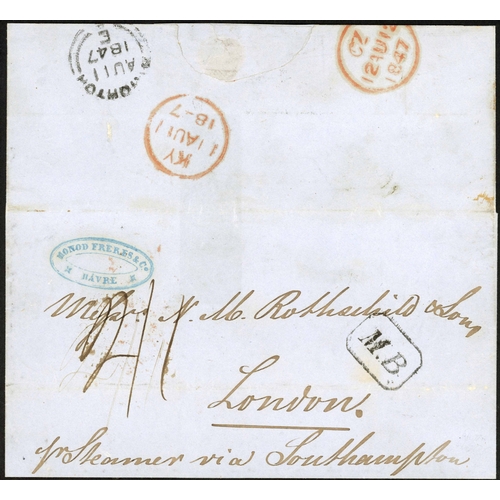 BRIGHTON
E
AU 11
1847
CZ
12 AU 12
1847
KY
11 AU 11
1847
MONOD FRERES & Co
HAVRE
Messrs N. M. Rothschild & Sons
M.B.
London.
pr Steamer via Southampton